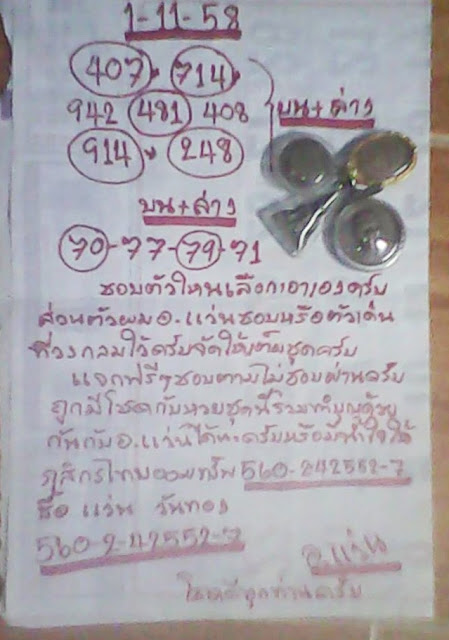 1-11-58
407 714
942 481 408
บน+ล่าง
914 248
บน+ล่าง
70-77-79-71
ชอบตัวไหนเลือกเอาเองครับ
ส่วนตัวผม อ.แว่นชอบหรือตัวเด่น
ที่วงกลมไว้ครับจัดให้เต็มชุดครับ
แจกฟรีๆชอบตามไม่ชอบผ่านครับ
ถูกมีโชคกับหวยชุดนี้ร่วมทำบุญด้วย
กันกับอ.แว่นได้นะครับหรือมีน้ำใจให้
กสิกรไทยออมทรัพ 560-242552-7
ชื่อ แว่น วันทอง
560-2-42552-7
อ.แว่น
โชคดีทุกท่านครับ